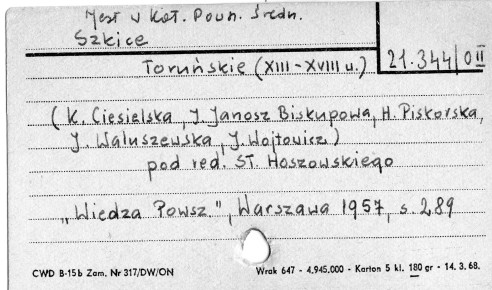 Jest w Kat. Pown. Średn.
Szkice
Toruńskie (XIII-XVIII w.) 21.344/0II
(K. Ciesielska, J. Janosz Biskupowa, H. Piskorska,
J. Waluszewska, J. Wojtowicz)
pod red. ST. Hoszowskiego
„Wiedza Powsz.", Warszawa 1957, s. 289
CWD B-15b Zam. Nr 317/DW/ON Wrak 647 - 4.945.000 - Karton 5 kl. 180 gr - 14. 3. 68.